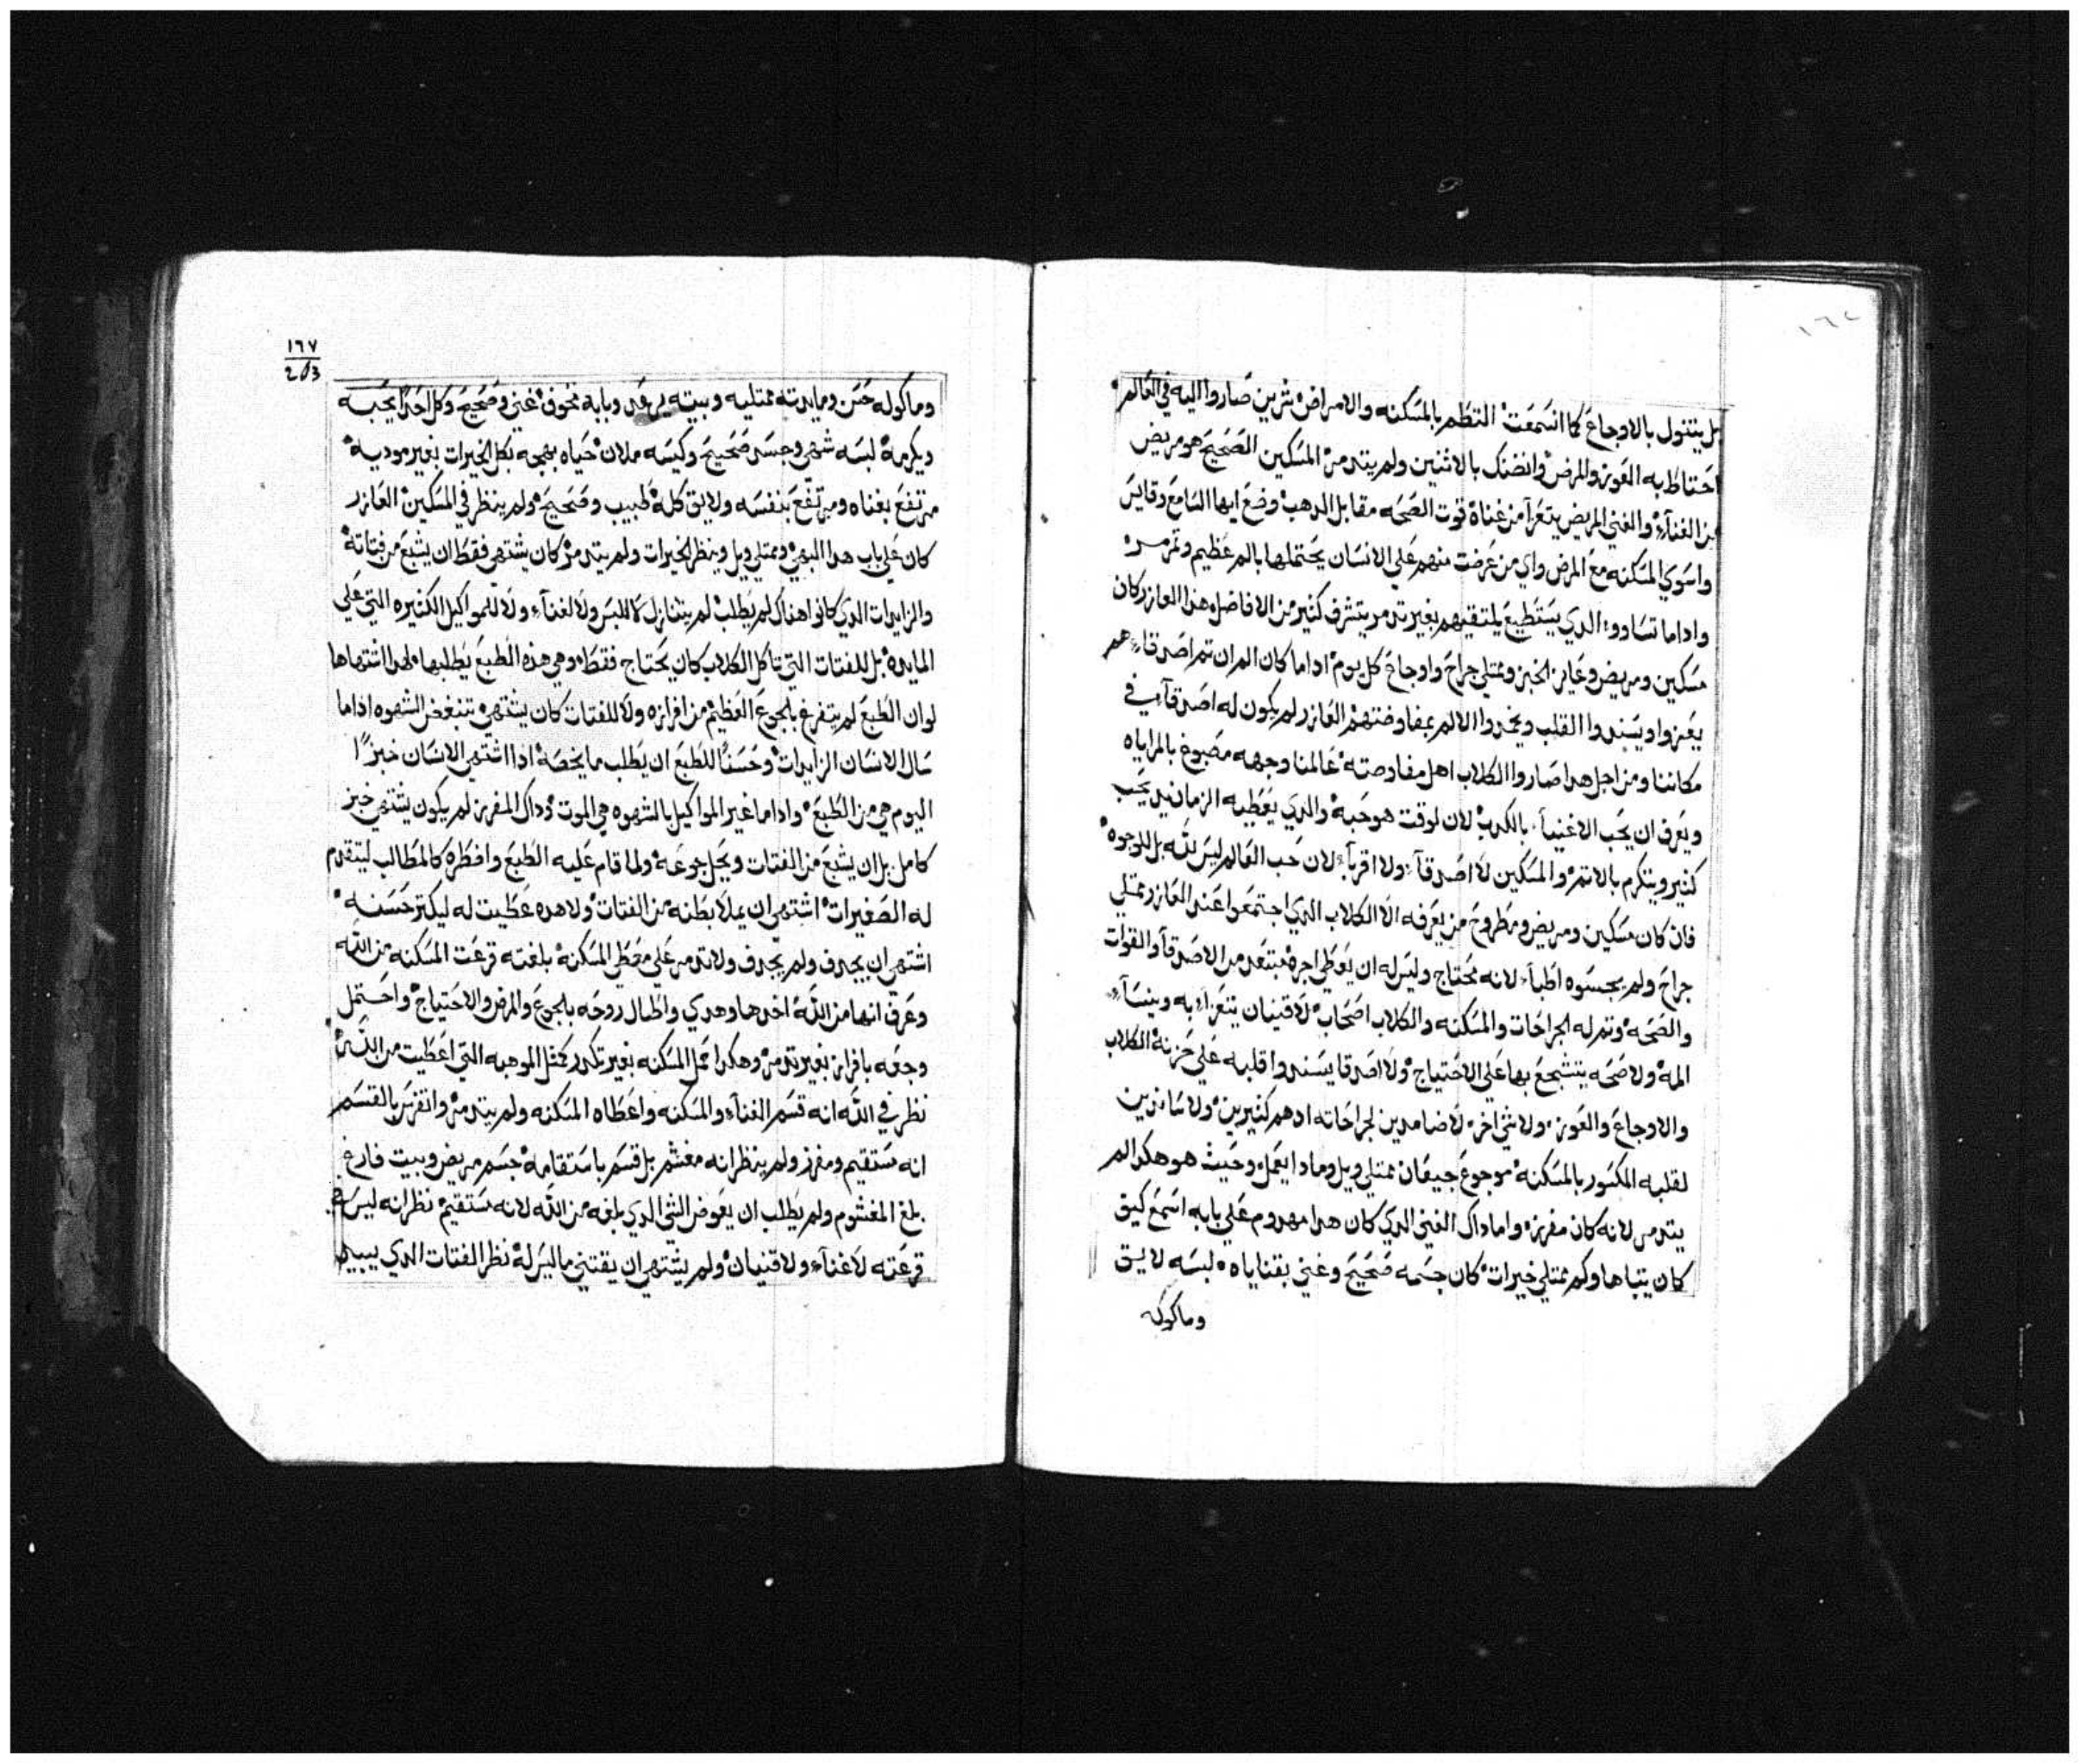 بل يتنول بالاوجاع كما انسمعت التطم بالمسكنه والامراض شرين صاروا اليه في العالم
احتاط به العوز والمرض وانضنك بالاثنين ولم يتدمر المسكين الصحيح هو مريض
من الغناء والغني المريض يتعرا من غناه قوت الصحه مقابل الدهب وضع ايها السامع وقايس
واسوي المسكنه مع المرض واي من عرضت منهم علي الانسان يحتملها بالم عظيم وتمرمر
واداما تساووا الدي يستطيع يلتقيهم بغير تدمر يتشرف كتير من الافاضل هدا العازر كان
مسكين ومريض وعايز الخبز وممتلي جراح واوجاع كل يوم اداما كان الم ان تم اصدقاء هم
يعزوا ويسندوا القلب ويخدروا الالم بمفاوضتهم العازر لم يكون له اصدقاء في
مكاننا ومن اجل هدا صاروا الكلاب اهل مفاوضته عالمنا وجهه مصبوغ بالمراياه
ويعرف ان يحب الاغنيا بالكدب لان لوقت هو حبه والدي يعطيه الزمانيين يحب
كتير ويتكرم بالاتم والمسكين لا اصدقاء ولا اقرباء لان حب العالم ليس لله بل للوجوه
فان كان مسكين ومريض ومطروح من يعرفه الا الكلاب الدي اجتمعوا عند العازر وممتلي
جراح ولم يجسوه اطباء لانه محتاج وليس له ان يعطي اجره مبتعد من الاصدقا والقوات
والصحه وتم له الجراحات والمسكنه والكلاب اصحاب لا قنيان يتعزا به وينساء
المه ولا صحه يتشجع بها علي الاحتياج ولا اصدقا يسندوا قلبه علي حزنه الكلاب
والاوجاع والعوز ولا شي اخر لا ضامدين لجراحاته ادهم كتيرين ولا ساندين
لقلبه المكسور بالمسكنه موجوع جيعان ممتلي ويل ومادا يعمل وحيث هو هكدا لم
يتدمر لانه كان مفرز واما داك الغني الدي كان هدا مهدوم علي بابه اسمع كيف
كان يتباها وكم ممتلي خيرات كان جسمه صحيح وغني بقناياه لبسه لايق
وماكوله
١٦٧
203
وماكوله حسن ومايدته ممتليه وبيته يرعد وبابه مخوف غني وصحيح وكل احد يحبه
ويكرمه لبسه شهي وجسده صحيح وكيسه ملان حياه بهجه بكل الخيرات بغير موديه
مرتفع بغناه ومرتفع بنفسه ولايق كله طبيب وصحيح ولم ينظر في المسكين العازر
كان علي باب هدا البهي وممتلي ويل وينظر الخيرات ولم يتدمر كان يشتهي فقط ان يشبع من فتاته
والزايدات الدي كانوا هناك لم يطلب لم يتنازل لا للبس ولا لغناء ولا للمواكيل الكتيره التي علي
المايده بل للفتات التي تاكل الكلاب كان يحتاج فقط وهي هذه الطبع يطلبها لهدا اشتهاها
لو ان الطبع لم يتفرغ بالجوع العظيم من افرازه ولا للفتات كان يشتهي تنبغض الشهوه اداما
سال الانسان الزايدات وحسناً للطبع ان يطلب ما يخصه ادا اشتهي الانسان خبزًا
اليوم هي من الطبع واداما غير المواكيل بالشهوه هي الموت وداك المفرز لم يكون يشتهي خبز
كامل بل ان يشبع من الفتات ويحل جوعه ولما قام عليه الطبع واضطره كالمطالب ليتقدم
له الصغيرات اشتهي ان يملا بطنه من الفتات ولا هده عطيت له ليكتر حسنه
اشتهي ان يجدف ولم يجدف ولا تدمر علي معطي المسكنه بلغته قرعت المسكنه من الله
وعرف انها من الله اخدها وهدي واطال روحه بالجوع والمرض والاحتياج واحتمل
وجعه بافراز بغير تدمر وهكدا عمل المسكنه بغير تكدر كمثل الموهبه التي اعطيت من الله
نظر في الله انه قسم الغناء والمسكنه واعطاه المسكنه ولم يتدمر وانفرس بالقسم
انه مستقيم ومفرز ولم ينظر انه مغشم بل قسم باستقامه جسم مريض وبيت فارغ
بلغ المغشوم ولم يطلب ان يعوض الشي الدي بلغه من الله لانه مستقيم نظر انه ليس في
قرعته لا غناء ولا قنيان ولم يشتهي ان يقتني ما ليس له نظر الفتات الدي